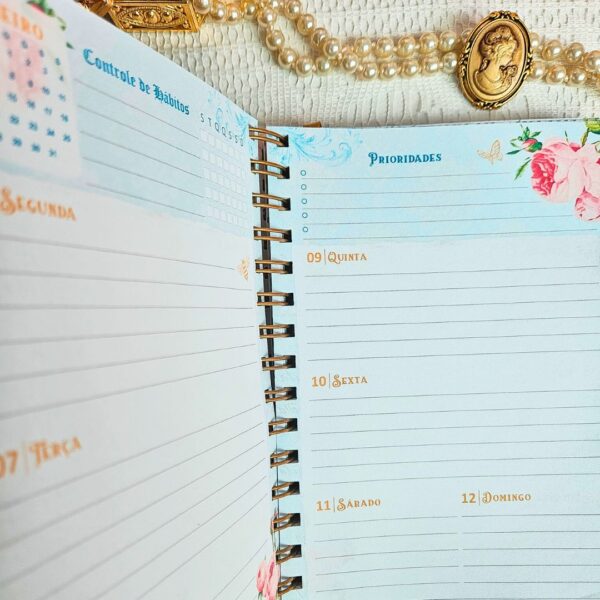 EIRO
Controle de Hábitos
S T Q Q S S D
Segunda
07 | Terça
Prioridades
09 | Quinta
10 | Sexta
11 | Sábado
12 | Domingo